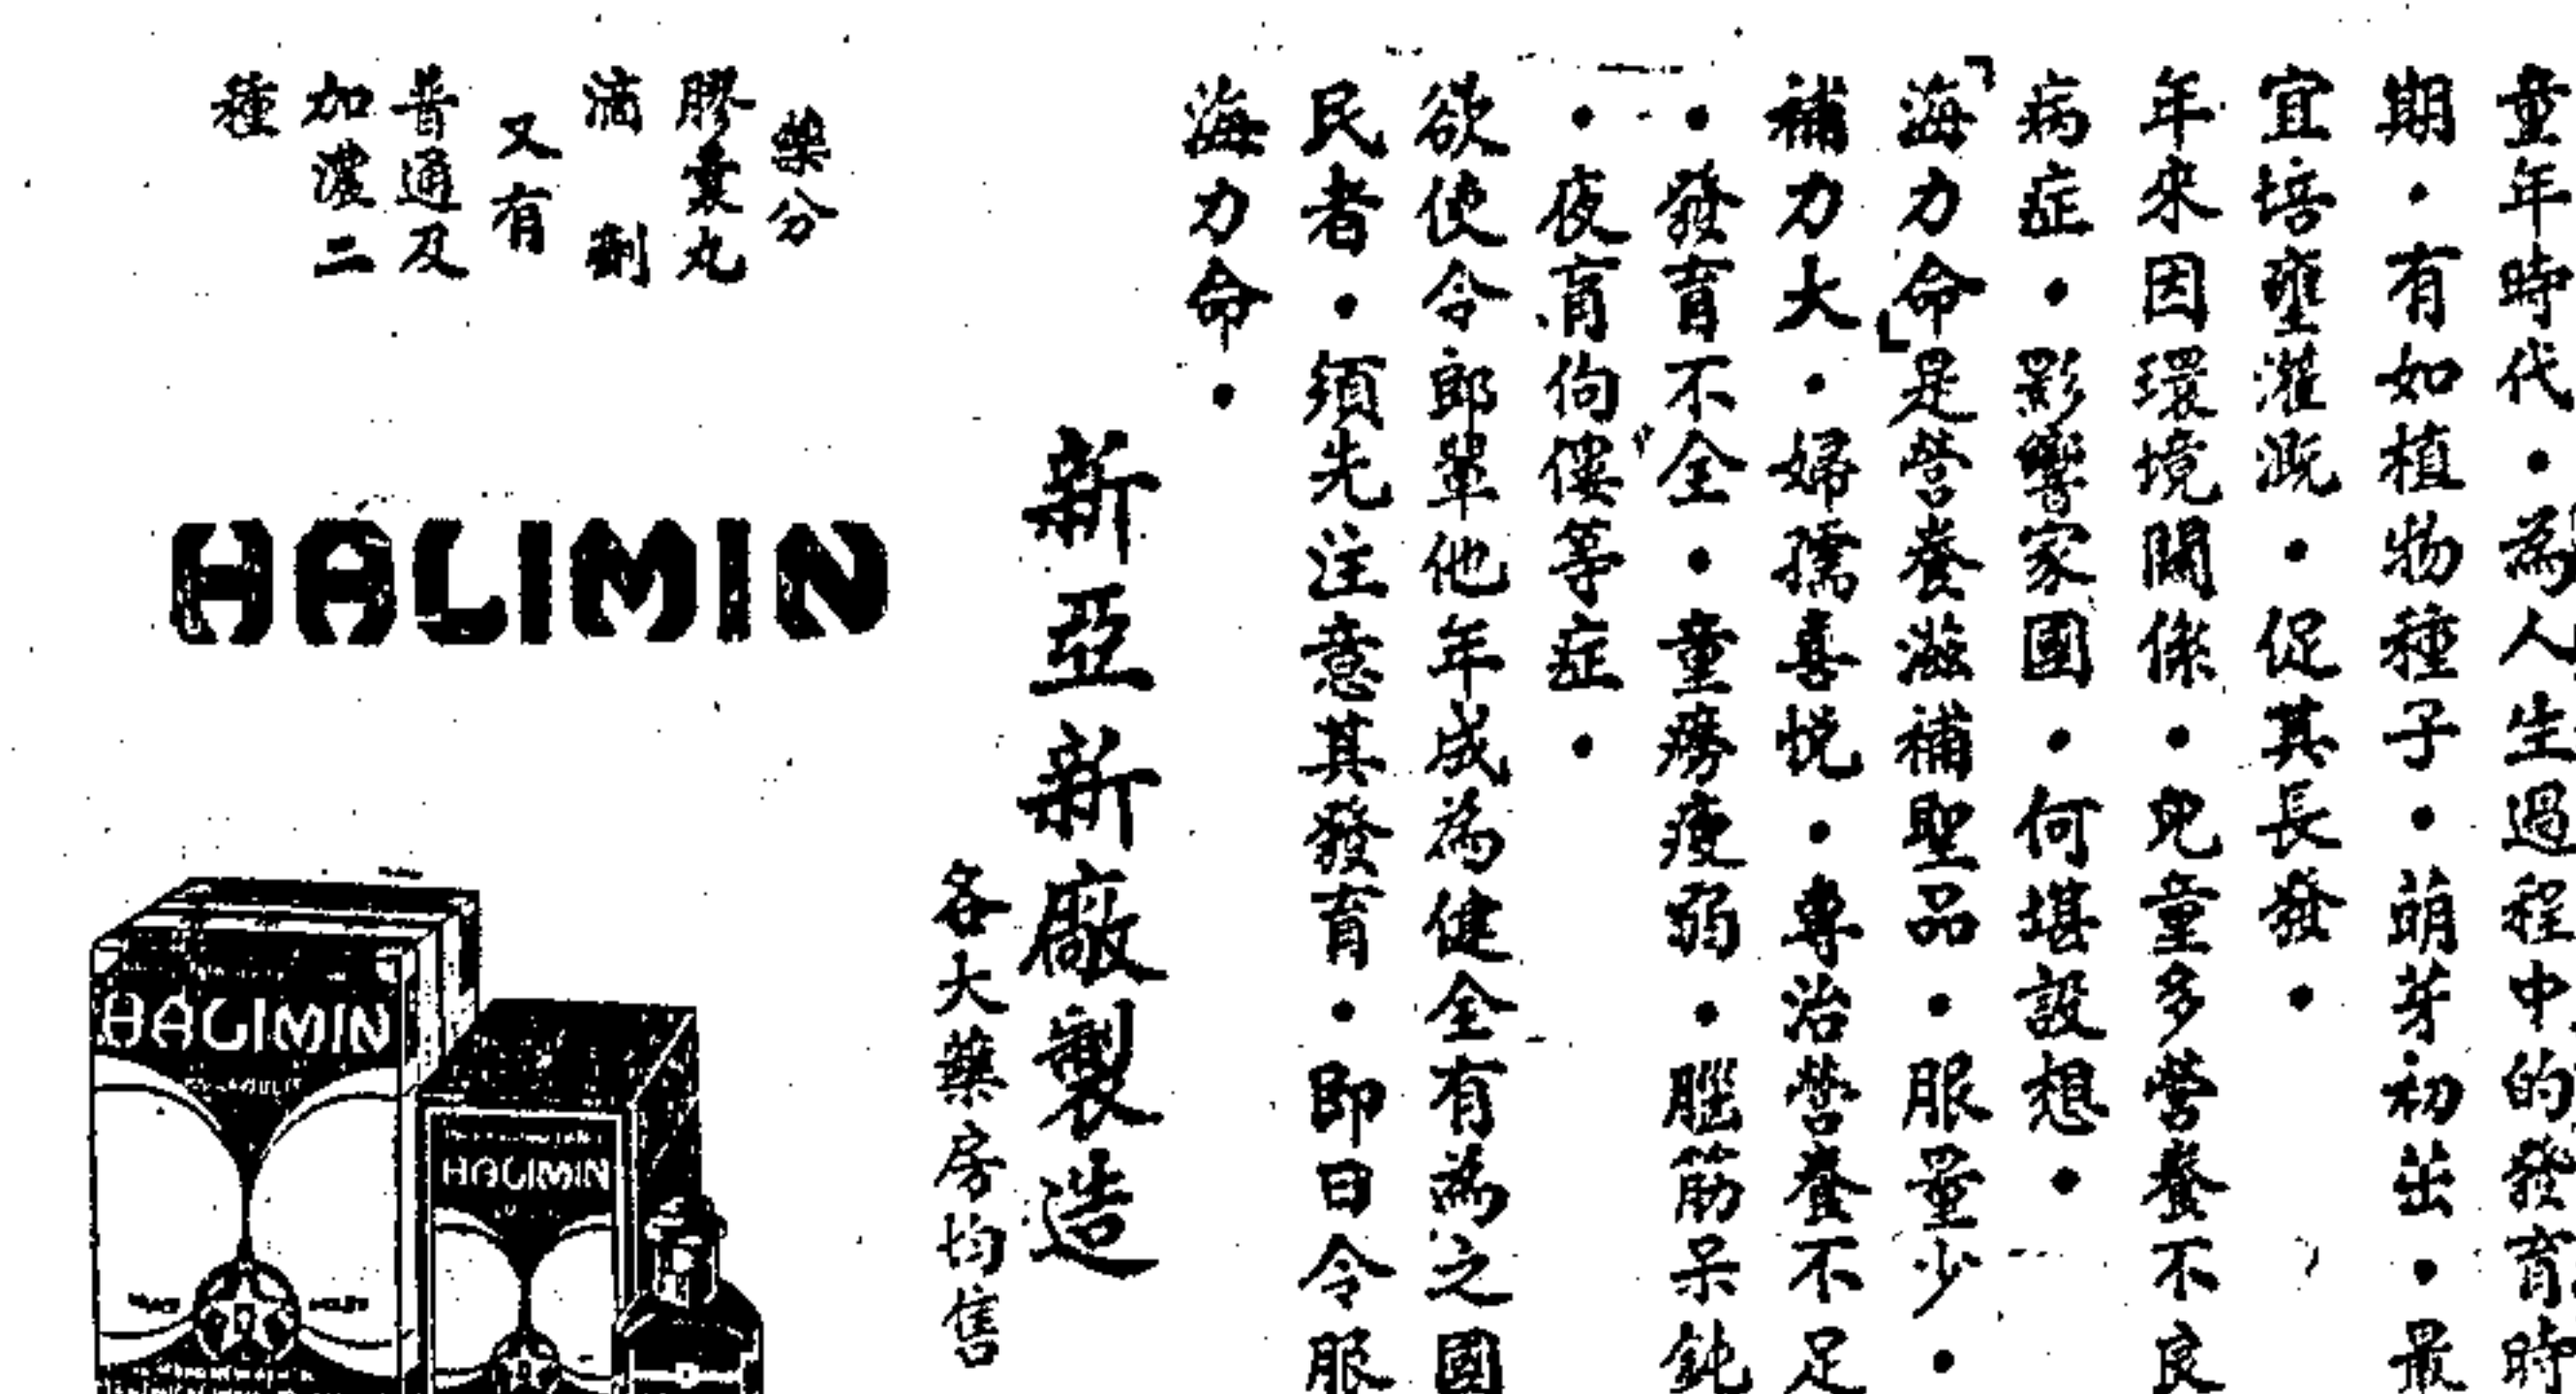 童年時代・為人生過程中的發育時
期・有如植物種子・萌芽初茁・最
宜培壅灌溉・促其長發・
年來因環境關係・兒童多營養不良
病症・影響家國・何堪設想・
「海力命」是營養滋補聖品・服量少・
補力大・婦孺喜悅・專治營養不足
・發育不全・童癆瘦弱・腦筋呆鈍
・夜盲佝僂等症・
欲使令郎輩他年成為健全有為之國
民者・須先注意其發育・即日令服
海力命・
新亞新廠製造
各大藥房均售
藥分
膠囊丸
滴劑
又有
普通及
加濃二
種
HALIMIN
HALIMIN
HALIMIN